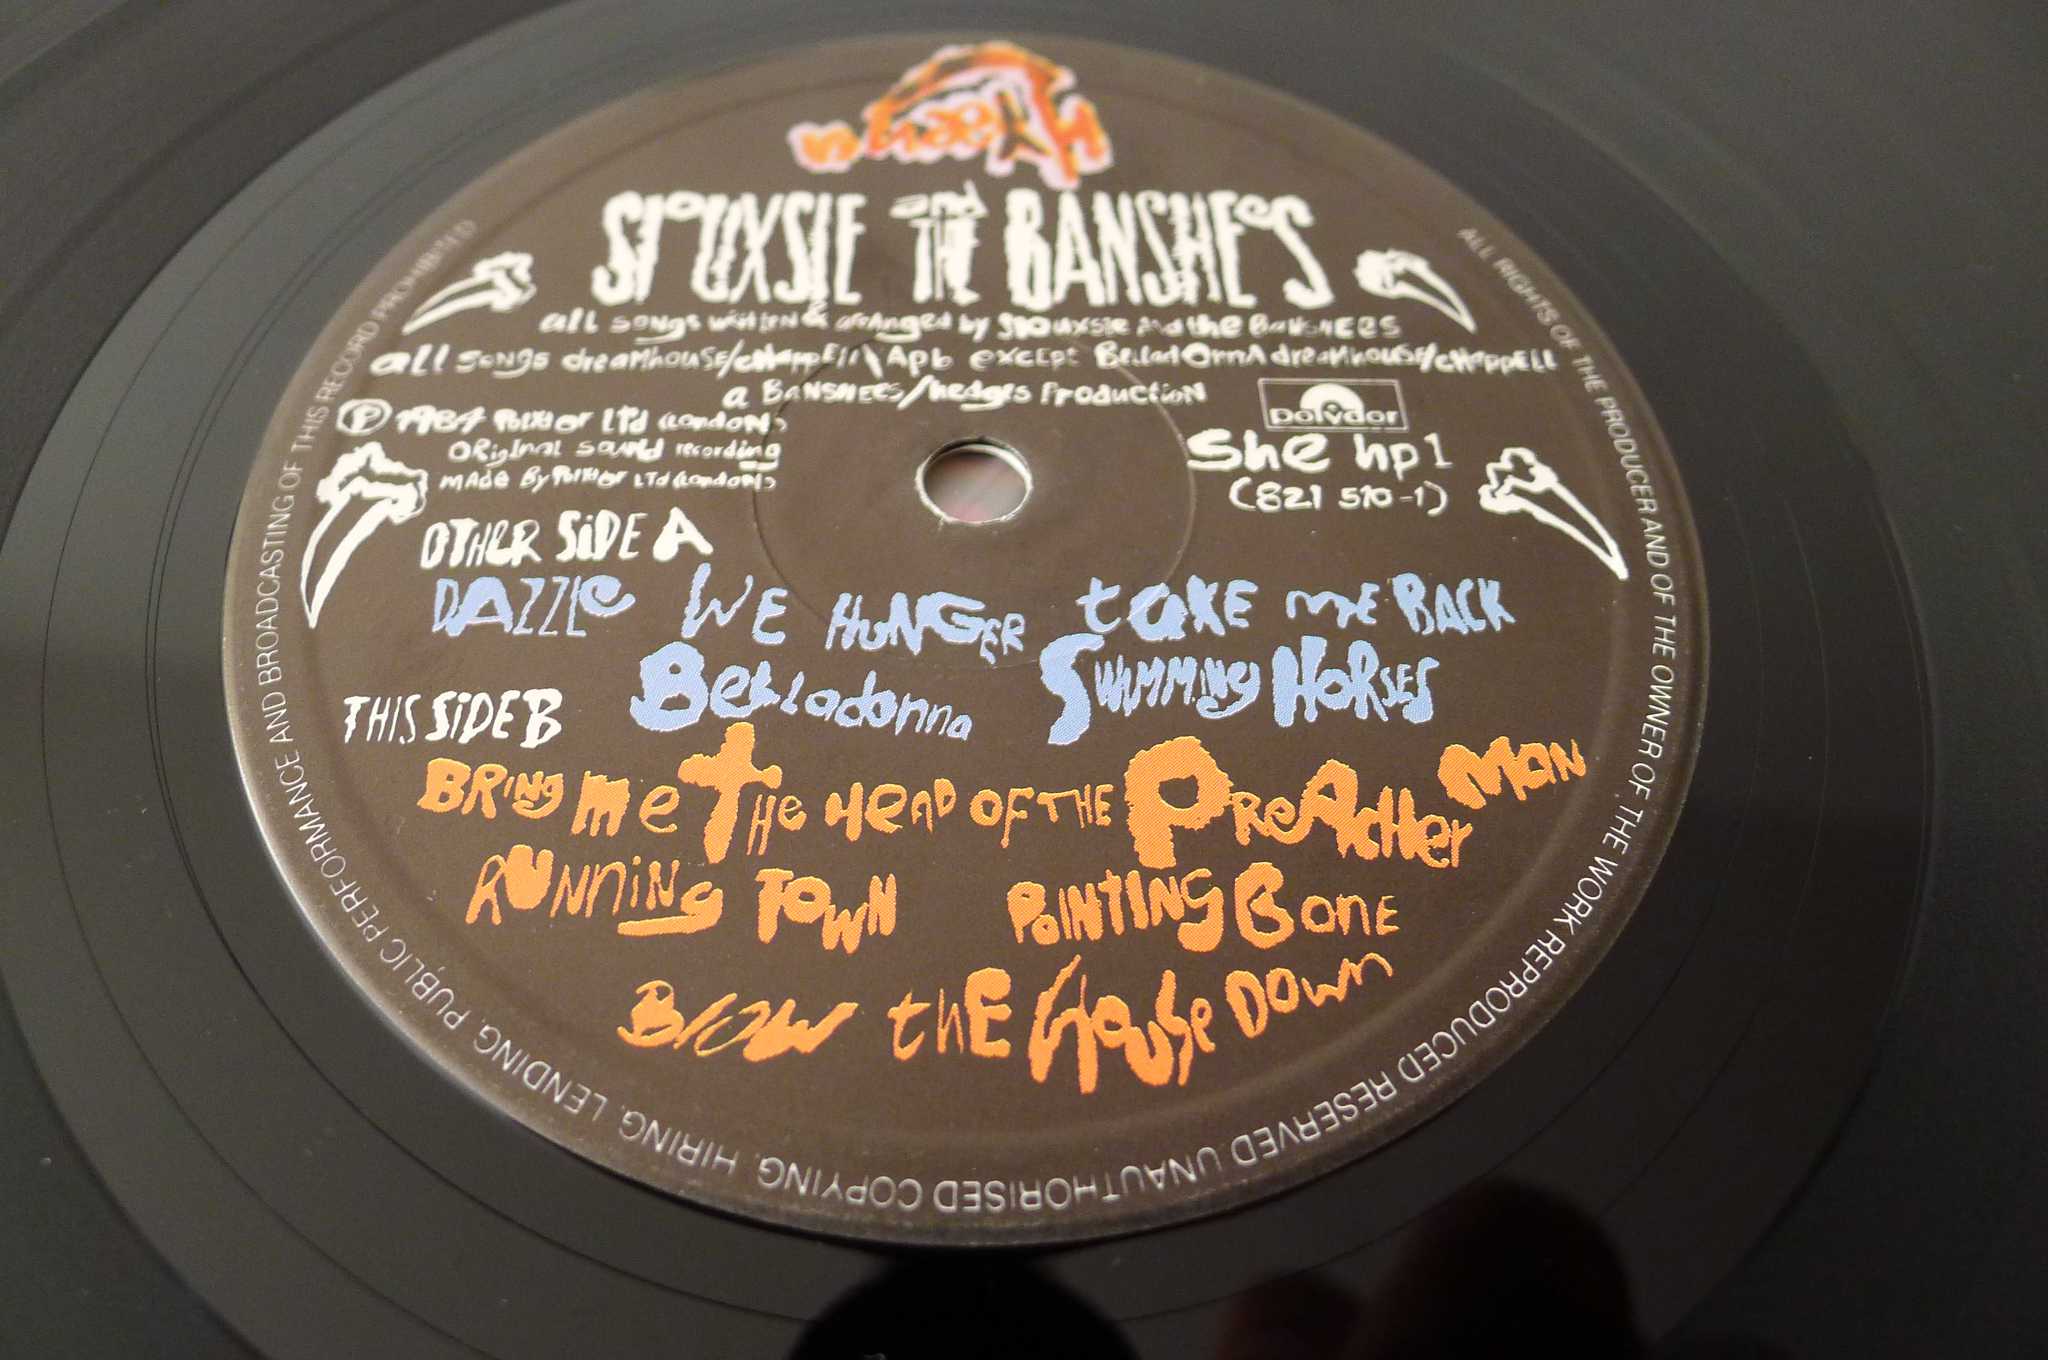 SIOUXSIE and THE BANSHEES
all songs written & arranged by SIOUXSIE and the BANSHEES
all songs dreamhouse/chappell\Apb except BelladOnnA dreamhouse/chappell
a BANSHEES/hedges Production
Polydor
℗ 1984 Polydor LTd (London)
ORiginal sound recording
made By Polydor LTd (London)
she hp1
(821 510-1)
OTHER SiDE A
DAZZLe WE HUNGER tAKE me BACK
Belladonna SWiMMiNg HORSES
THIS SiDE B
BRing me THe HeAD OF THE PReAcHer MAN
RUNNiNg TOWN POiNTING BONE
BlOW thE House DOwn
ALL RIGHTS OF THE PRODUCER AND OF THE OWNER OF THE WORK REPRODUCED RESERVED. UNAUTHORISED COPYING, HIRING, LENDING, PUBLIC PERFORMANCE AND BROADCASTING OF THIS RECORD PROHIBITED